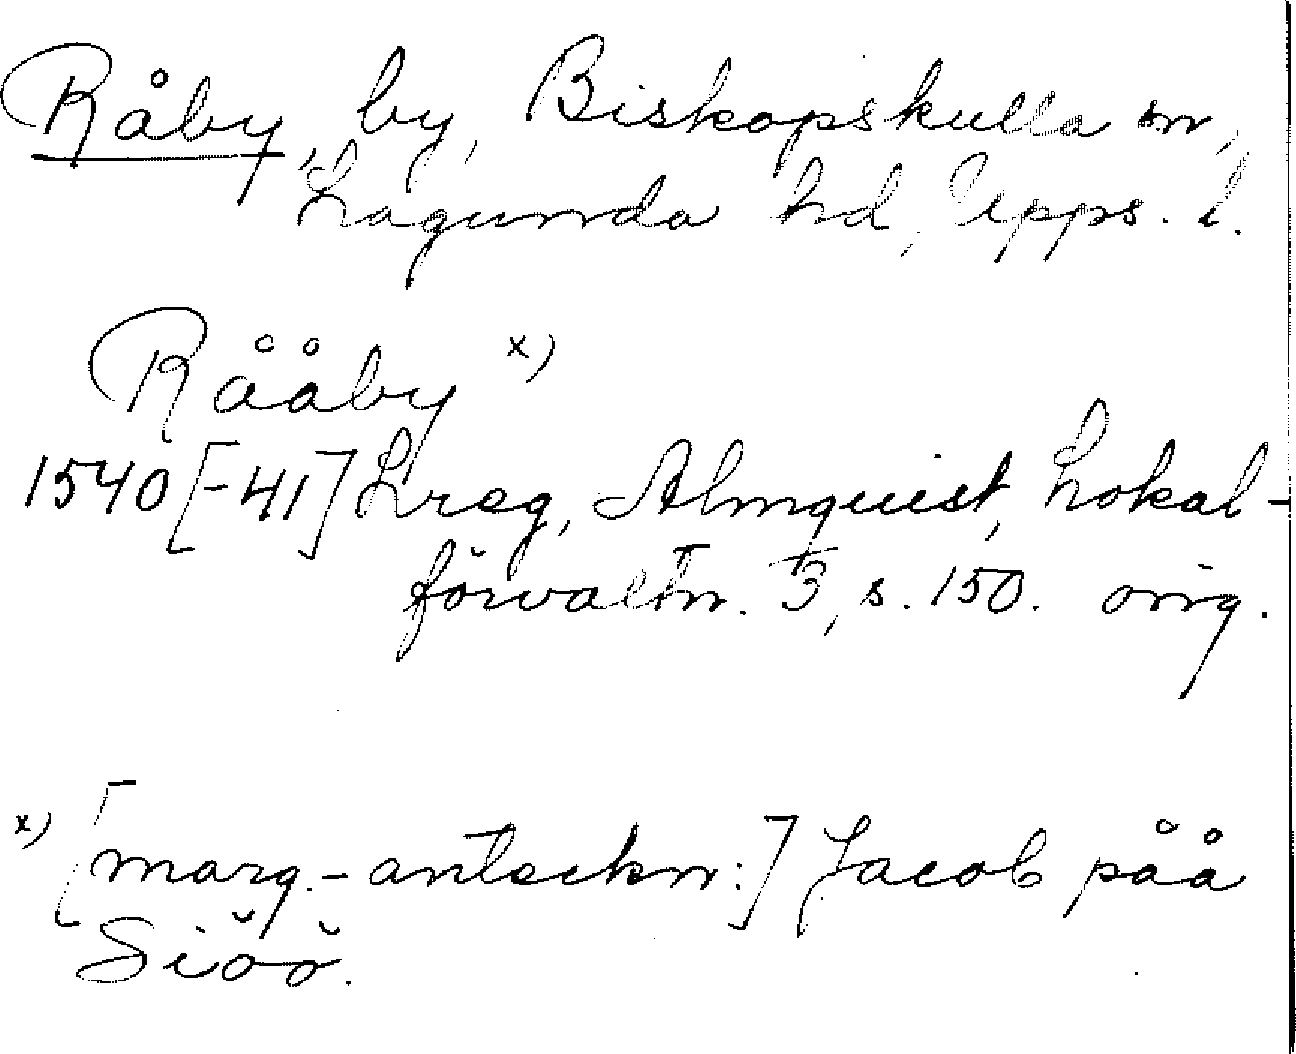 Råby, by, Biskopskulla sn,
Lagunda hd, Upps. l.
Rååby x)
1540 [-41] Lreg, Almquist, Lokal-
förvaltn. 3, s. 150. orig.
x) [marg.-anteckn:] Jacob påå
Siöö.